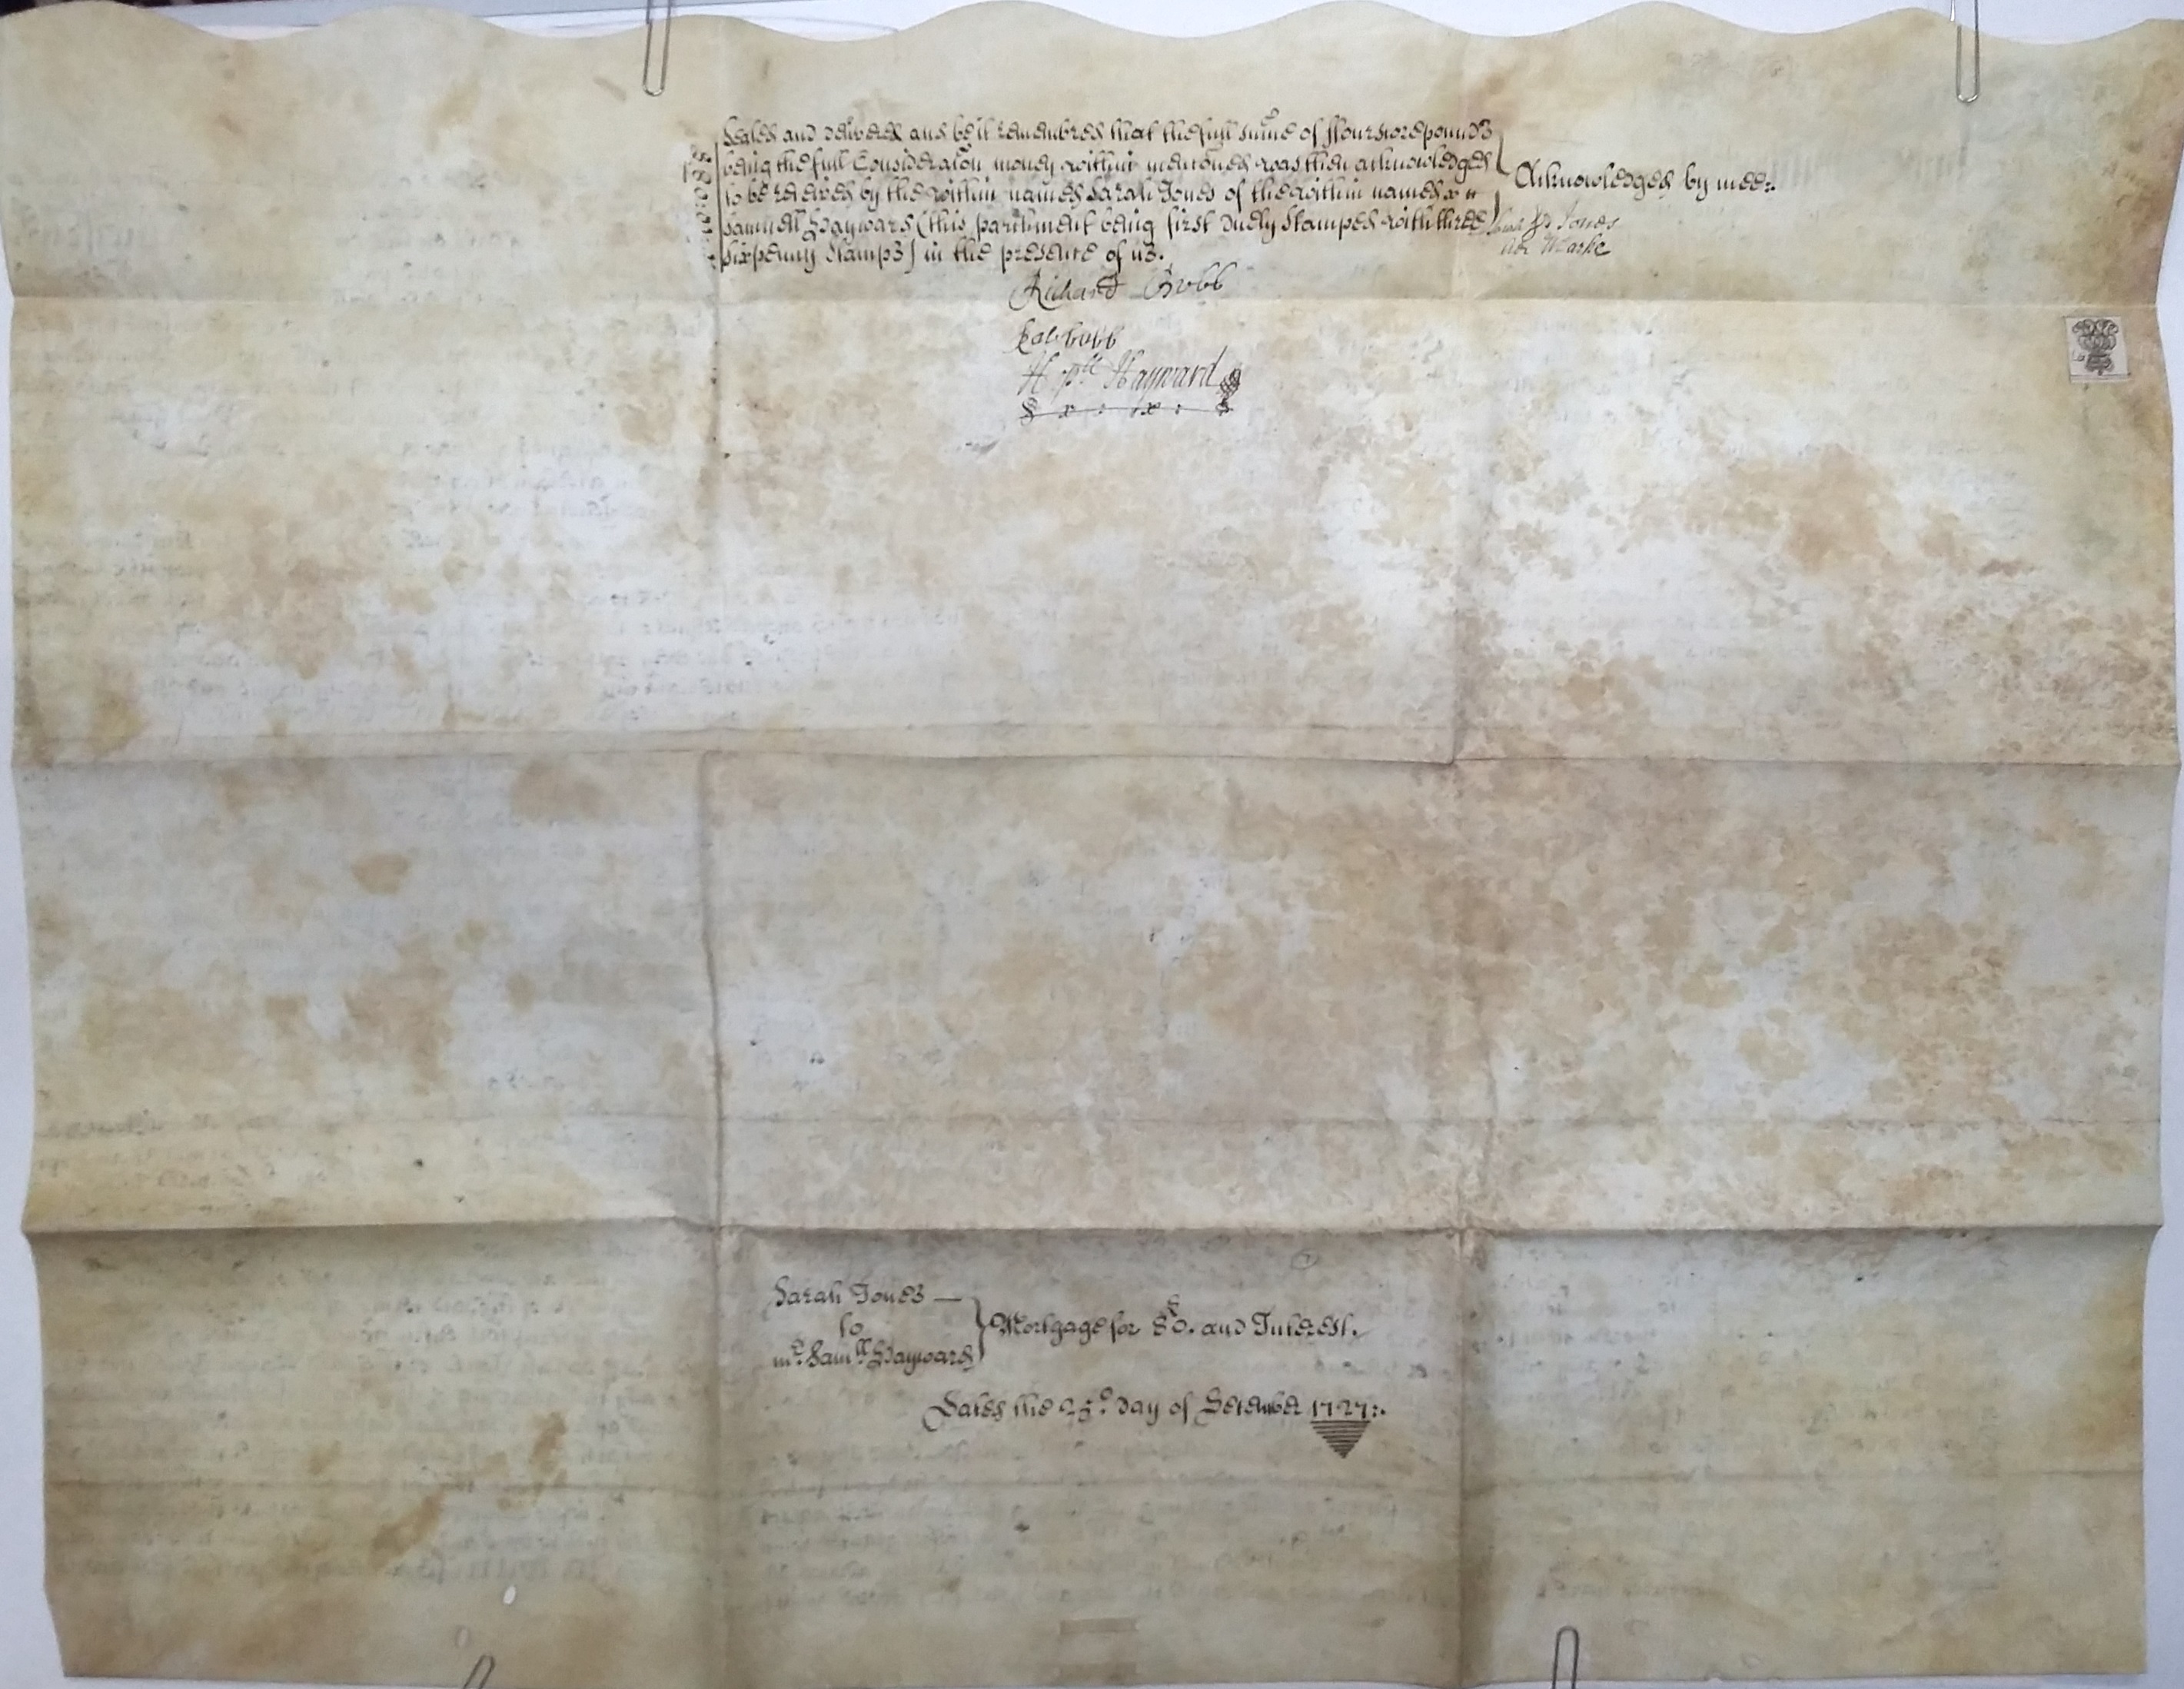 Sealed and delivered and be it remembred that the full sume of ffourscore pounds
being the full Consideracon money within mencned was then acknowledged
to be received by the within named Sarah Jones of the within named
Samuell Hayward (this parchment being first duely stamped with three
sixpenny stamps) in the presence of us.
Acknowledged by mee:.
Sarah Jones
her Marke
Richard Bobb
Hayward
Sarah Jones
to
mr. Samll Hayward
Mortgage for 80£. and Interest.
Dated the 25o. day of December 1727:.